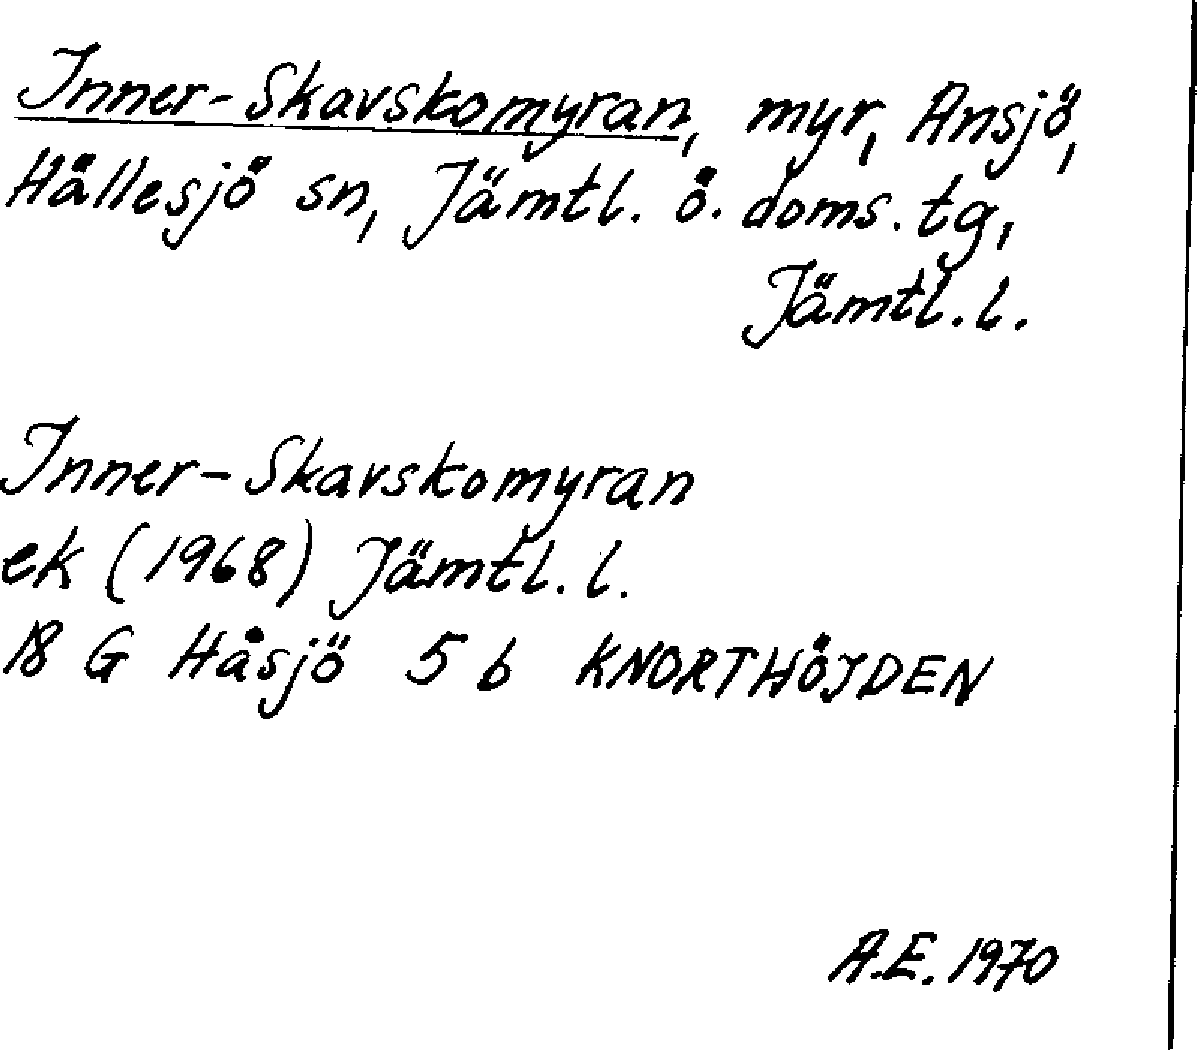 Inner-Skavskomyran, myr, Ansjö,
Hällesjö sn, Jämtl. ö. doms. tg,
Jämtl. l.
Inner-Skavskomyran
ek (1968) Jämtl. l.
18 G Håsjö 5 b KNORTHÖJDEN
A.E. 1970